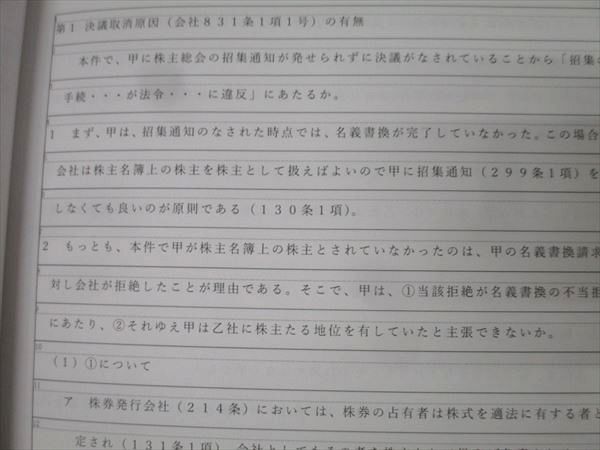 第1 決議取消原因（会社831条1項1号）の有無
本件で、甲に株主総会の招集通知が発せられずに決議がなされていることから「招集の
手続・・・が法令・・・に違反」にあたるか。
1 まず、甲は、招集通知のなされた時点では、名義書換が完了していなかった。この場合
会社は株主名簿上の株主を株主として扱えばよいので甲に招集通知（299条1項）を
しなくても良いのが原則である（130条1項）。
2 もっとも、本件で甲が株主名簿上の株主とされていなかったのは、甲の名義書換請求
対し会社が拒絶したことが理由である。そこで、甲は、①当該拒絶が名義書換の不当拒
にあたり、②それゆえ甲は乙社に株主たる地位を有していたと主張できないか。
10
（1）①について
11
ア 株券発行会社（214条）においては、株券の占有者は株式を適法に有する者と
12
定され（131条1項）、会社として